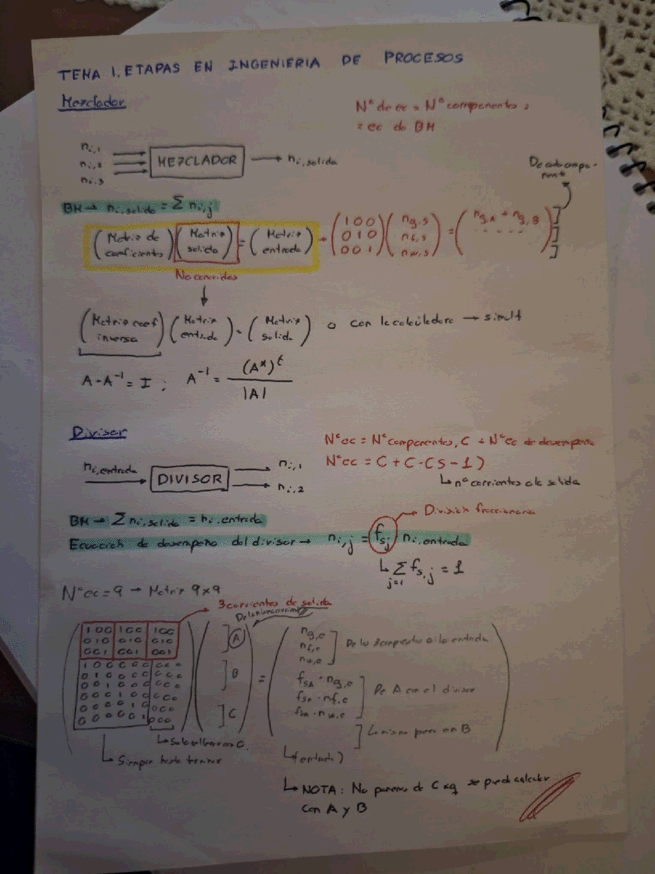 TEMA 1. ETAPAS EN INGENIERIA DE PROCESOS
Mezclador
Nº de ec = Nº componentes =
= ec de BM
ni,1
ni,2
ni,3
MEZCLADOR
ni,salida
De cada compo-
nente
BM → ni,salida = Σ ni,j
(Matriz de coeficientes) (Matriz salida) = (Matriz entrada) → (1 0 0 / 0 1 0 / 0 0 1) (ng,s / nf,s / nw,s) = (ng,A + ng,B / - - - - -)
No conocidas
(Matriz coef inversa) (Matriz entrada) = (Matriz salida) o con la calculadora → simult
A - A⁻¹ = I ; A⁻¹ = (A*)ᵗ / |A|
Divisor
Nºec = Nºcomponentes, C + Nºec de desempeño
Nºec = C + C·(S-1)
↳ nº corrientes de salida
ni,entrada
DIVISOR
ni,1
ni,2
División fraccionaria
BM → Σ ni,salida = ni,entrada
Ecuación de desempeño del divisor → ni,j = fsj ni,entrada
↳ Σ fs,j = 1
j=1
Nºec = 9 → Matriz 9x9
3 corrientes de salida
1 0 0 1 0 0 1 0 0
0 1 0 0 1 0 0 1 0
0 0 1 0 0 1 0 0 1
1 0 0 0 0 0 0 0 0
0 1 0 0 0 0 0 0 0
0 0 1 0 0 0 0 0 0
0 0 0 1 0 0 0 0 0
0 0 0 0 1 0 0 0 0
0 0 0 0 0 1 0 0 0
A
B
C
=
ng,e
nf,e
nw,e
De los compuestos a la entrada
fsA · ng,e
fsA · nf,e
fsA · nw,e
De A con el divisor
Lo mismo para con B
(entrada)
↳ Siempre
↳ NOTA: No ponemos de C xq se puede calcular
con A y B